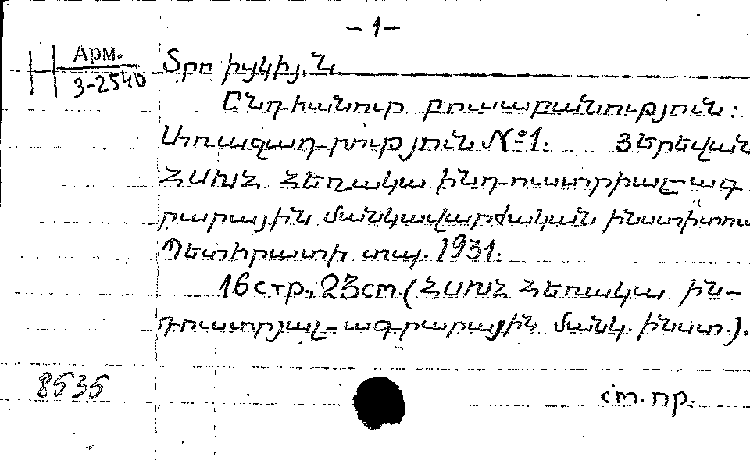 – 1 –
Арм.
3-2540
Տրոիցկիյ, Ն.
Ընդհանուր բուսաբանություն:
Առաջադրություն №1. Յերեվան
ՀՍԽՀ Հեռակա ինդուստրիալ ագ
րարային մանկավարժական ինստիտու
Պետհրատի տպ. 1931.
16 стр., 23 cm. (ՀՍԽՀ Հեռակա ին–
դուստրյալ-ագրարային մանկ. ինստ.).
8535
ст. пр.